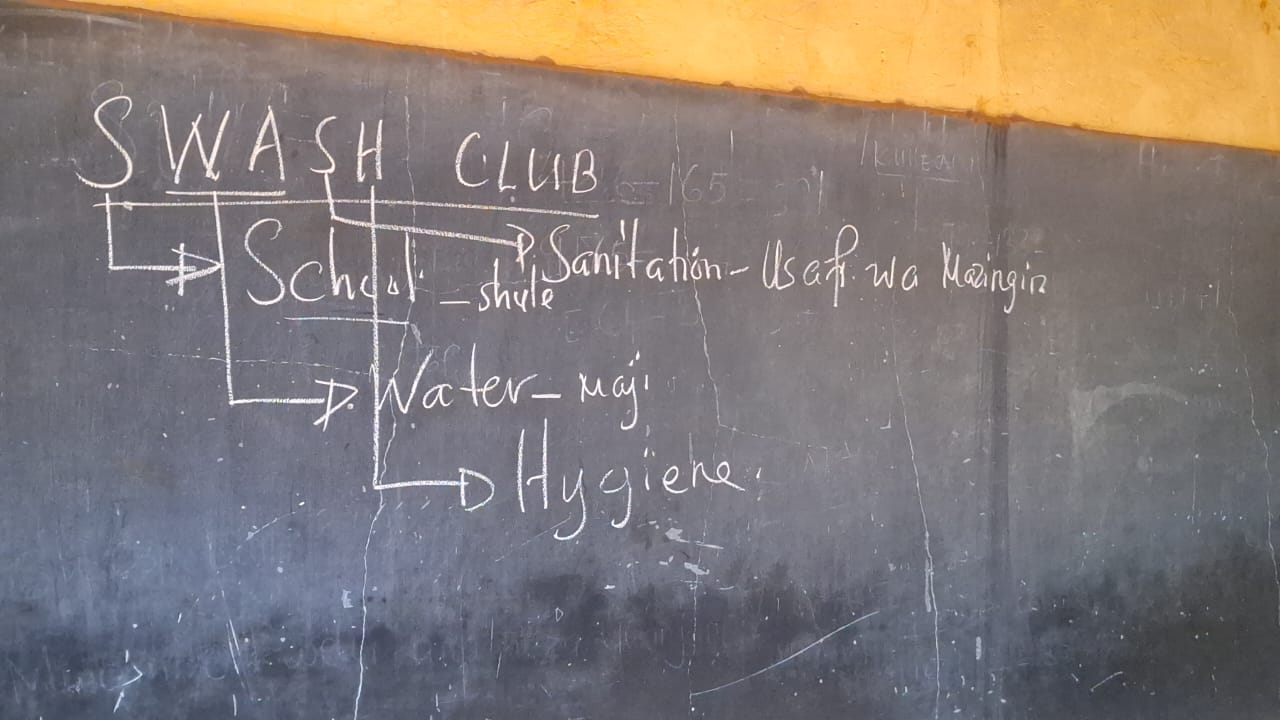 SWASH CLUB
School - shule
Sanitation - Usafi wa Mazingira
Water - maji
Hygiene.